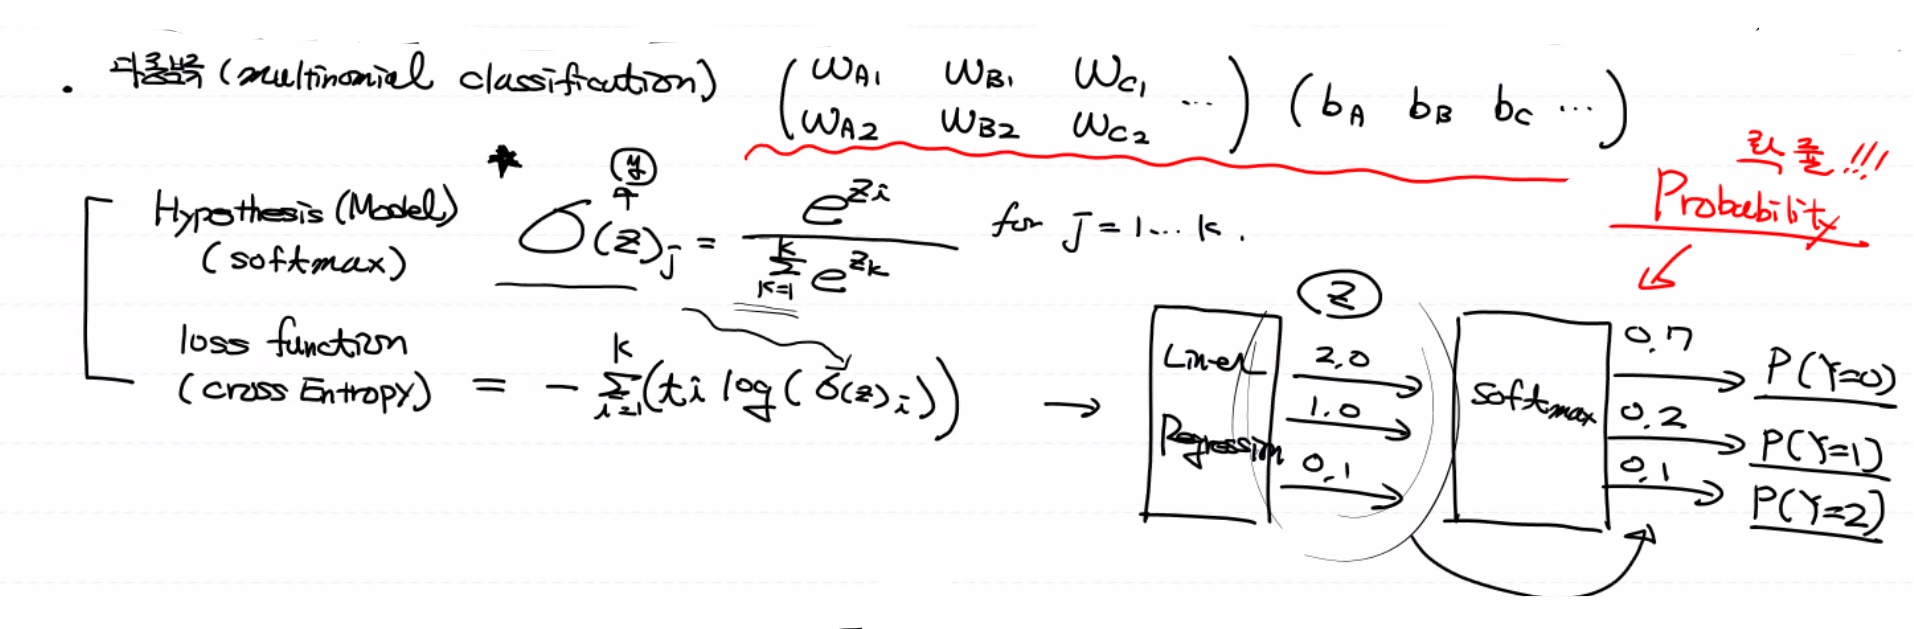 · 다중분류 (multinomial classification) ( WA1 WB1 WC1 ... ) ( bA bB bC ... )
WA2 WB2 WC2
확률!!!
Probability
★ y
Hypothesis (Model)
(softmax)
σ(z)j = e^zi / Σ(k=1..k) e^zk for j = 1... k.
loss function
(cross Entropy) = - Σ(i=1..k) (ti log(σ(z)i))
→
z
Linear
Regression
2.0
1.0
0.1
softmax
0.7 P(Y=0)
0.2 P(Y=1)
0.1 P(Y=2)